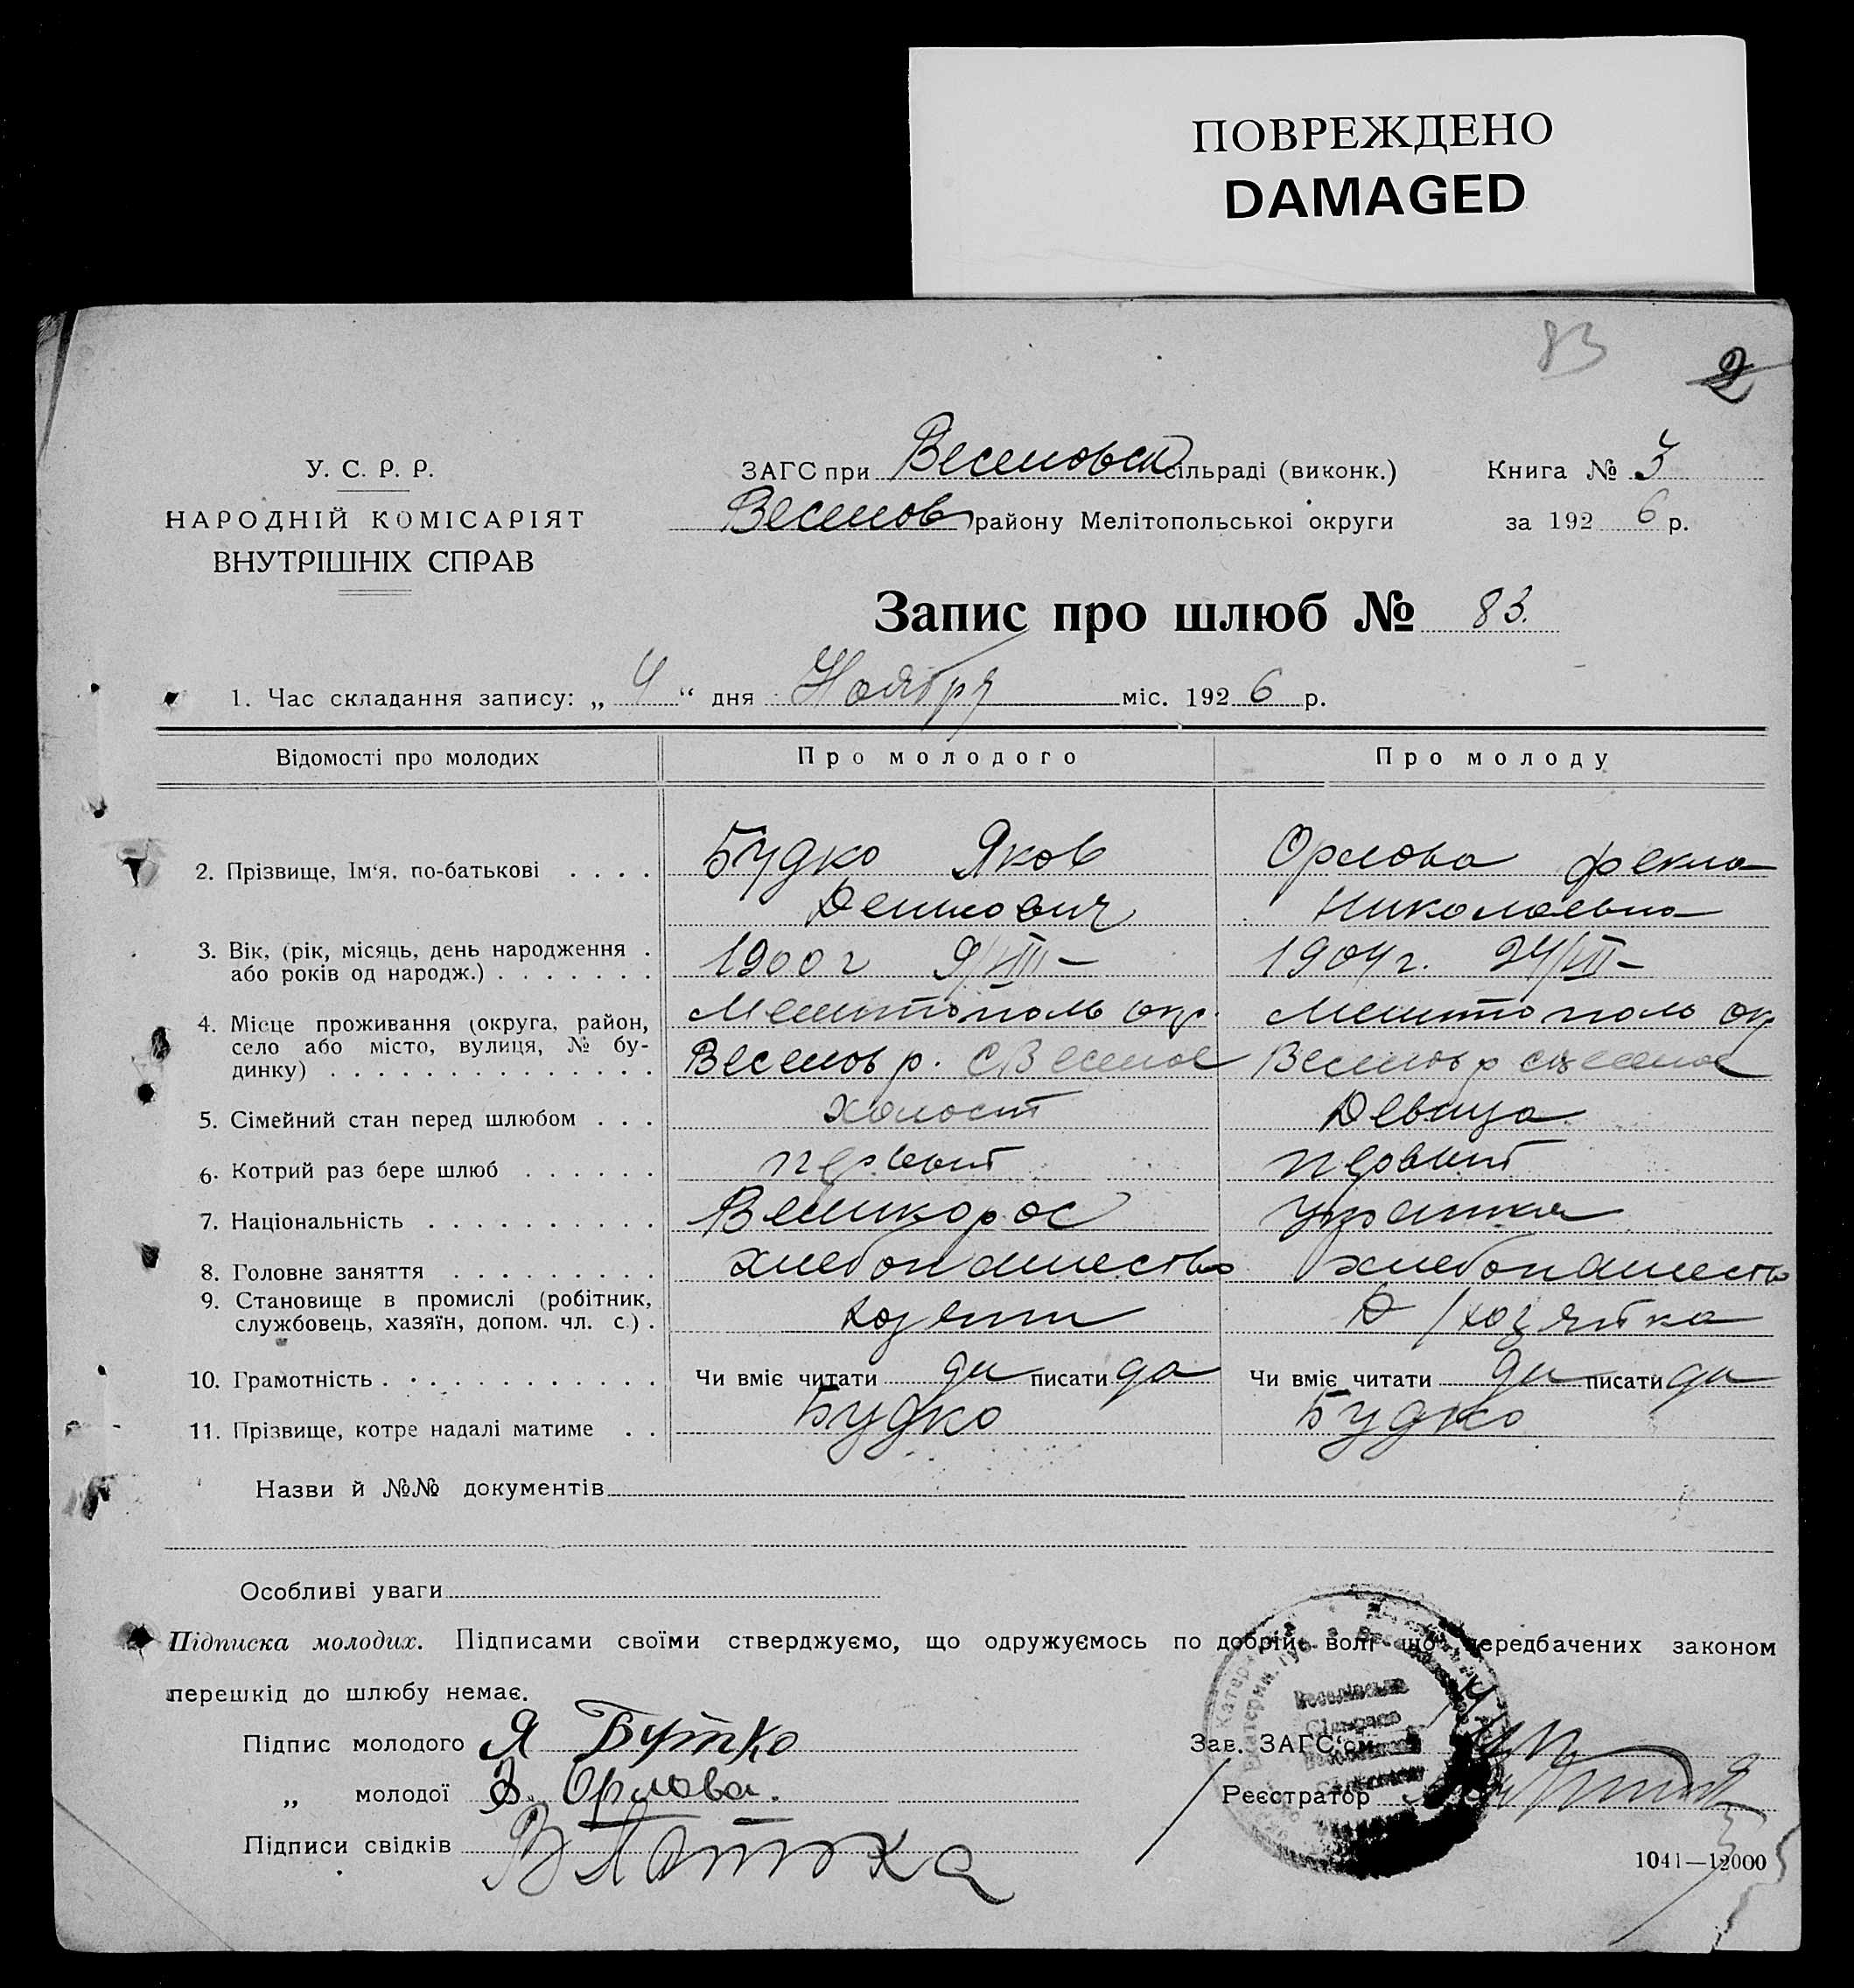 ПОВРЕЖДЕНО
DAMAGED
83
2
У. С. Р. Р.
НАРОДНІЙ КОМІСАРІЯТ
ВНУТРІШНІХ СПРАВ
ЗАГС при Веселовск сільраді (виконк.)
Веселов району Мелітопольської округи
Книга № 3
за 1926 р.
Запис про шлюб № 83.
1. Час складання запису: „ 4 “ дня Ноября міс. 1926 р.
Відомості про молодих Про молодого Про молоду
2. Прізвище, Ім‘я, по-батькові . . . . Будко Яков Орлова Фекла
Николаевна
3. Вік, (рік, місяць, день народження . 1900 г 1904 г.
або років од народж.) . . . . . . .
4. Місце проживання (округа, район, Мелитополь окр. Мелитополь окр
село або місто, вулиця, № бу- Веселов р. С Веселое Веселов р с Веселое
динку) . . . . . . . . . . . . . .
5. Сімейний стан перед шлюбом . . . холост Девица
6. Котрий раз бере шлюб . . . . . . первый первый
7. Національність . . . . . . . . . . Великорос
8. Головне заняття . . . . . . . . . хлебопашество хлебопашество
9. Становище в промислі (робітник,
службовець, хазяїн, допом. чл. с.) . хозяин Д/хозяйка
10. Грамотність . . . . . . . . . . . . Чи вміє читати да писати да Чи вміє читати да писати да
11. Прізвище, котре надалі матиме . . Будко Будко
Назви й №№ документів
Особливі уваги
Підписка молодих. Підписами своїми стверджуємо, що одружуємось по добрій волі що передбачених законом
перешкід до шлюбу немає.
Підпис молодого Я Бутко
„ молодої Орлова.
Підписи свідків
Зав. ЗАГС‘ом
Реєстратор
1041—12000